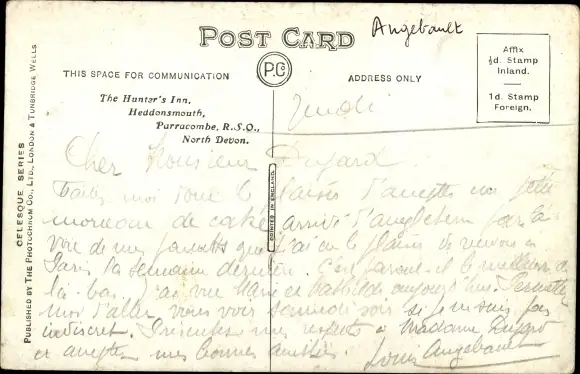 Angebault
POST CARD
P.Co
THIS SPACE FOR COMMUNICATION
ADDRESS ONLY
Affix
½d. Stamp
Inland.
1d. Stamp
Foreign.
The Hunter's Inn,
Heddonsmouth,
Parracombe, R.S.O.,
North Devon.
CELESQUE SERIES
PUBLISHED BY THE PHOTOCHROM CO., LTD., LONDON & TUNBRIDGE WELLS
PRINTED IN ENGLAND.
Jeudi
Cher Monsieur Dujard
Faites moi donc le plaisir d'accepter un petit
morceau de cake arrivé d'angleterre par la
voie de mes parents que j'ai eu le plaisir de revoir à
Paris la semaine dernière. C'est parait-il le meilleur de
là-bas. J'ai vu et Mathilde aujourd'hui. Permettez
moi d'aller vous voir soir si je ne suis pas
indiscret. Présentez mes respects à Madame Dujard
et acceptez mes bonnes amitiés.
Louis Angebault